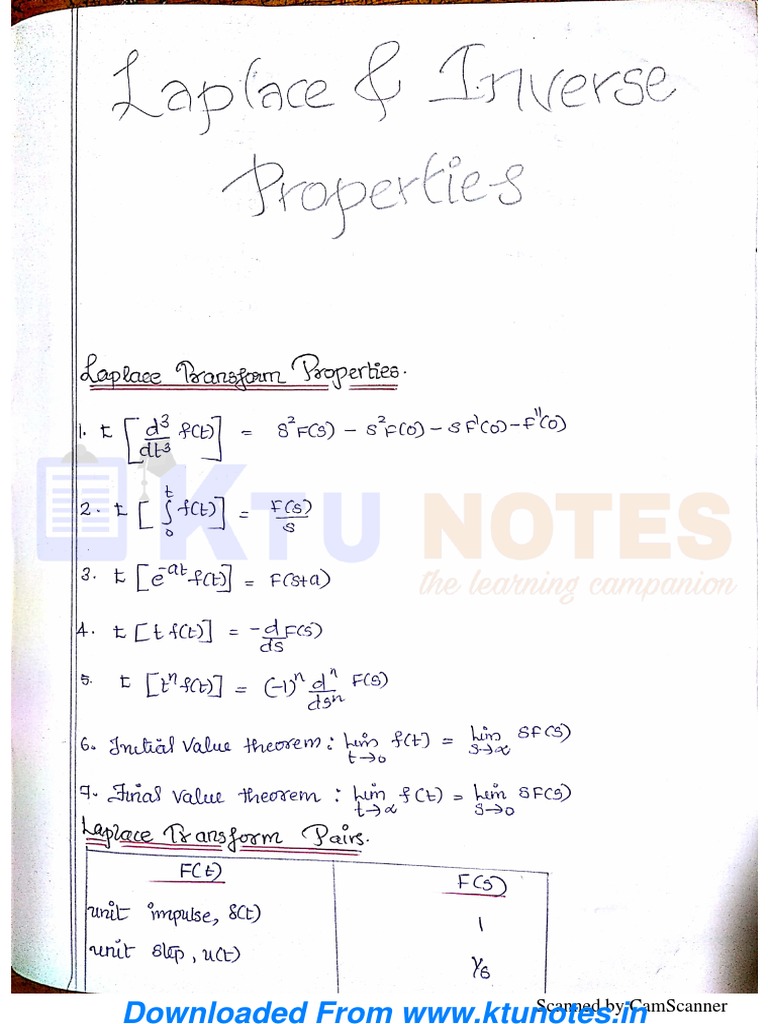 Laplace & Inverse
Properties
Laplace Transform Properties.
1. Ł [d³/dt³ f(t)] = s²F(s) - s²F(0) - sf'(0) - f''(0)
2. Ł [∫₀ᵗ f(t)] = F(s)/s
KTU NOTES
3. Ł [e^-at f(t)] = F(s+a)
the learning companion
4. Ł [t f(t)] = -d/ds F(s)
5. Ł [tⁿ f(t)] = (-1)ⁿ dⁿ/dsⁿ F(s)
6. Initial value theorem: lim t→0 f(t) = lim s→∝ sF(s)
7. Final value theorem: lim t→∝ f(t) = lim s→0 sF(s)
Laplace Transform Pairs.
F(t) F(s)
unit impulse, δ(t) 1
unit step, u(t) 1/s
Scanned by CamScanner
Downloaded From www.ktunotes.in